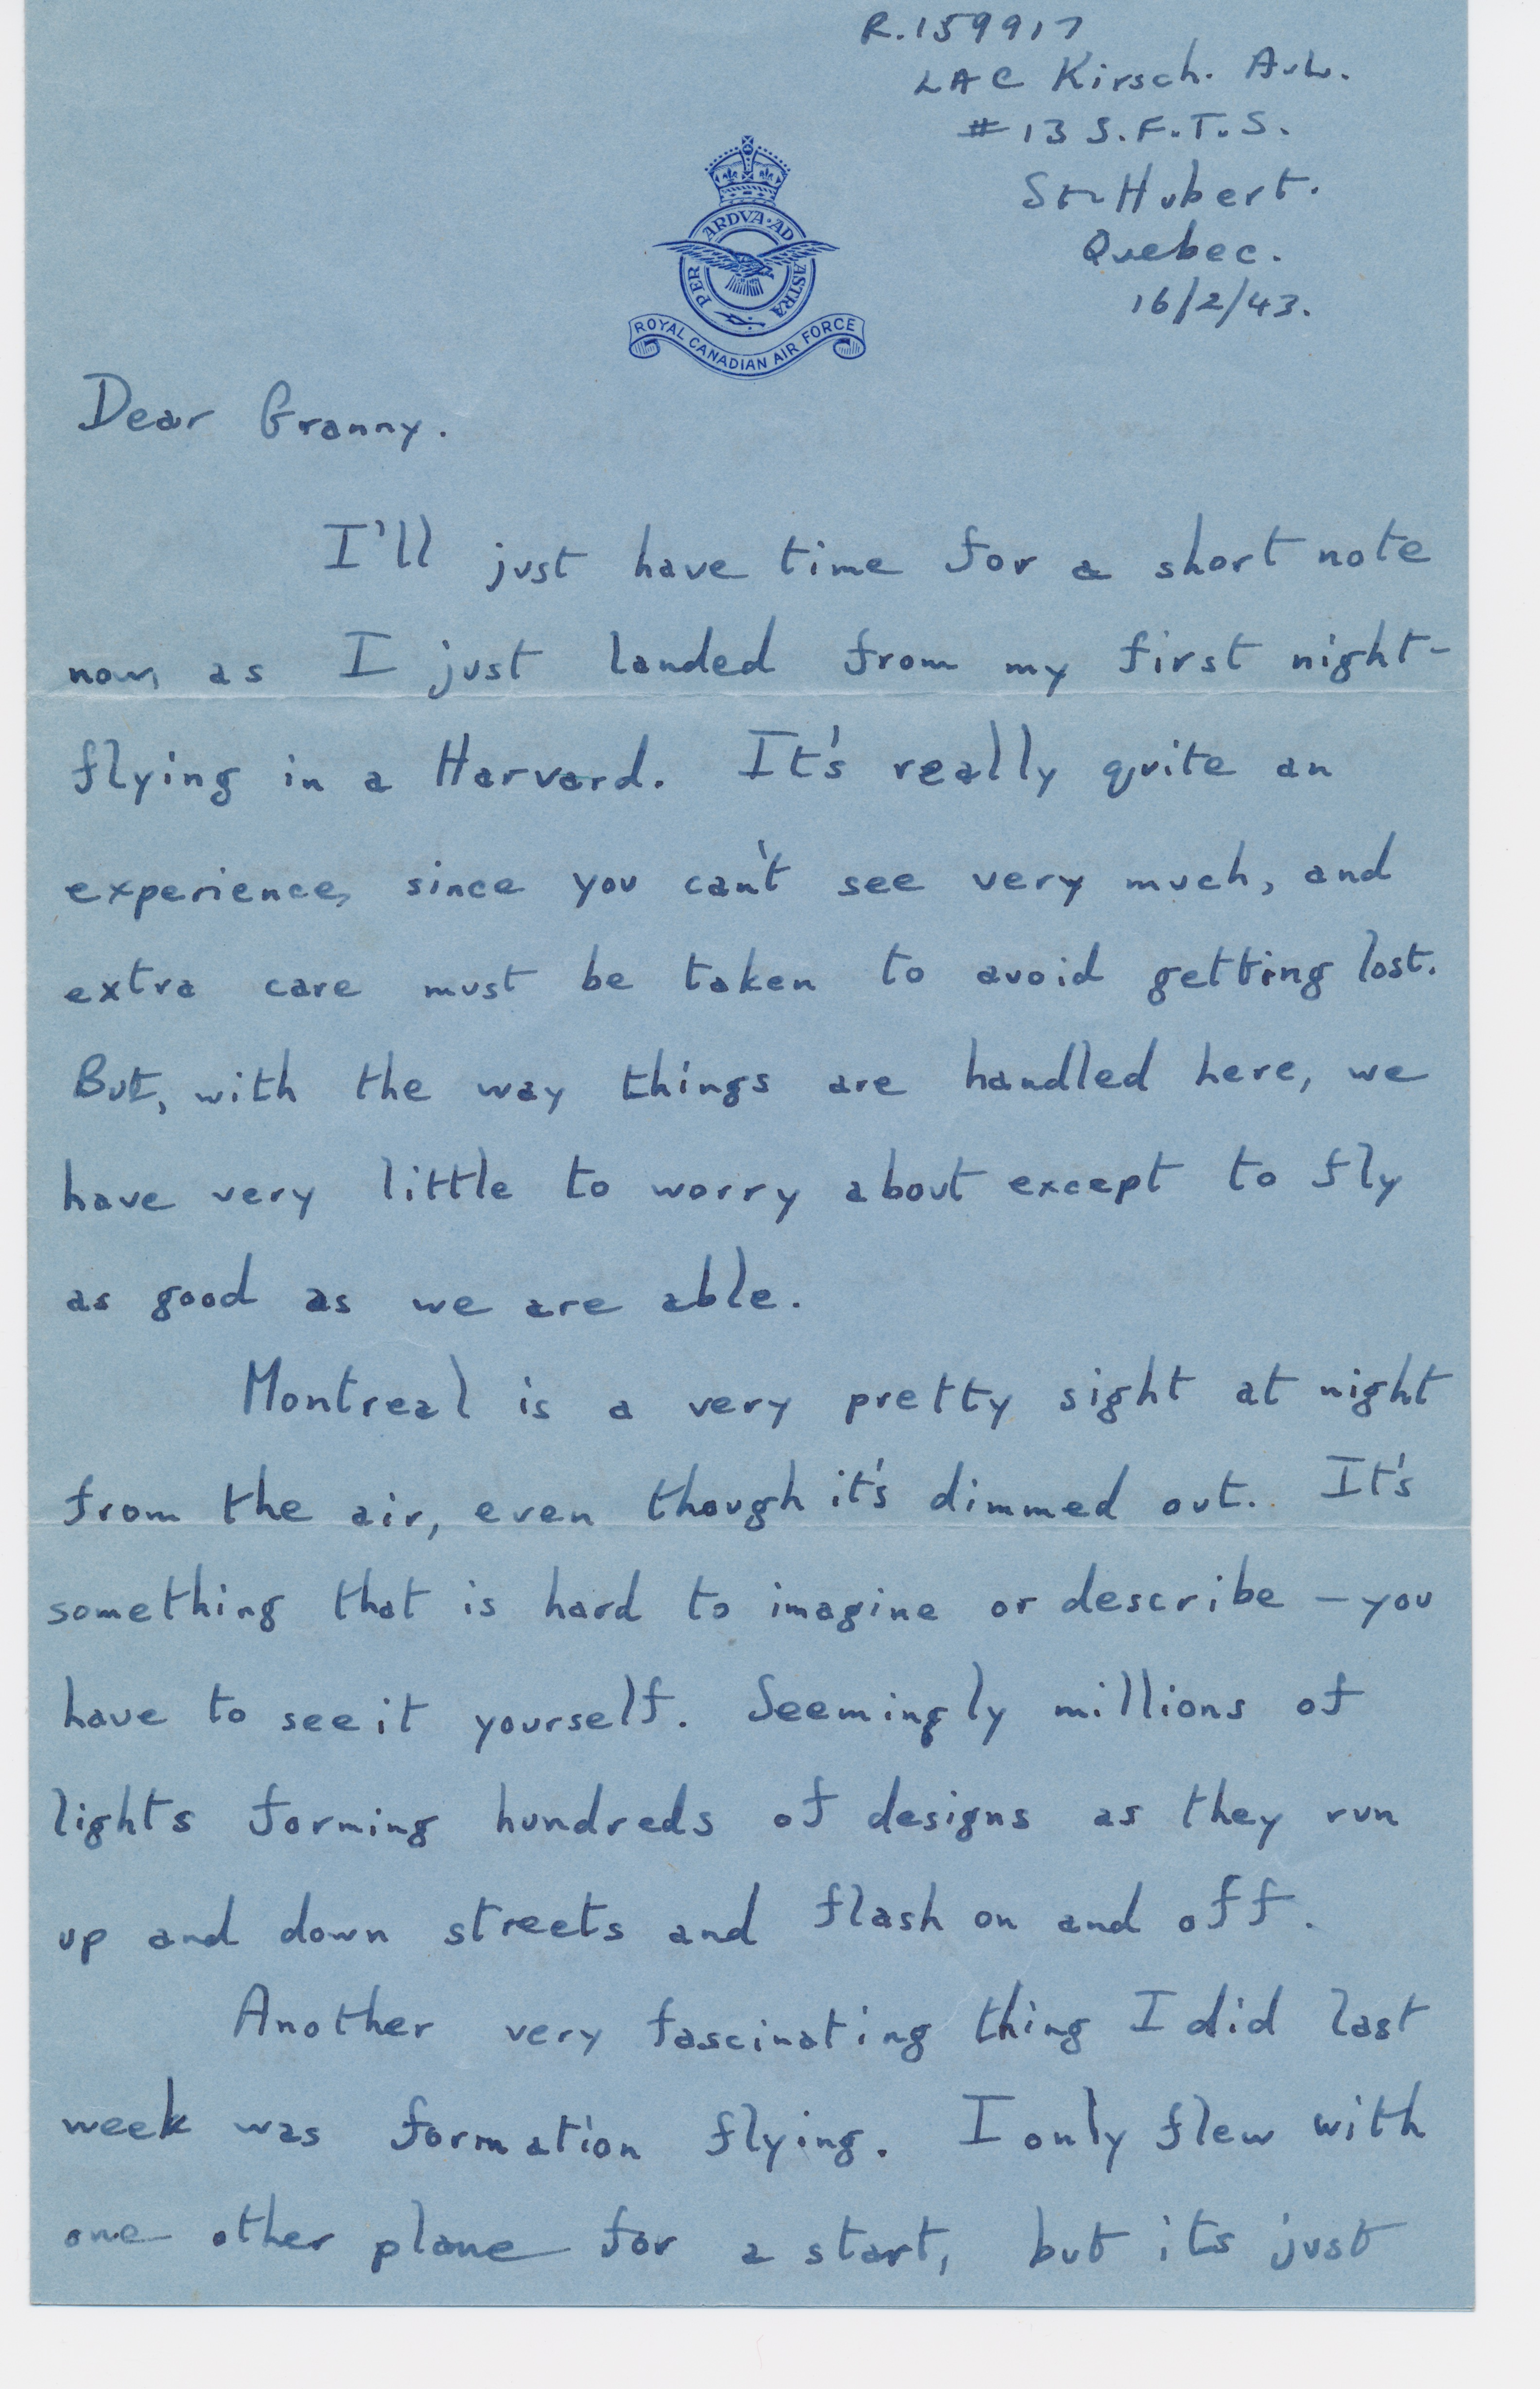 R.159917
LAC Kirsch. A.W.
#13 S.F.T.S.
St Hubert.
Quebec.
16/2/43.
PER ARDVA·AD ASTRA
ROYAL CANADIAN AIR FORCE
Dear Granny.
I'll just have time for a short note
now as I just landed from my first night-
flying in a Harvard. It's really quite an
experience, since you can't see very much, and
extra care must be taken to avoid getting lost.
But, with the way things are handled here, we
have very little to worry about except to fly
as good as we are able.
Montreal is a very pretty sight at night
from the air, even though it's dimmed out. It's
something that is hard to imagine or describe – you
have to see it yourself. Seemingly millions of
lights forming hundreds of designs as they run
up and down streets and flash on and off.
Another very fascinating thing I did last
week was formation flying. I only flew with
one other plane for a start, but its just